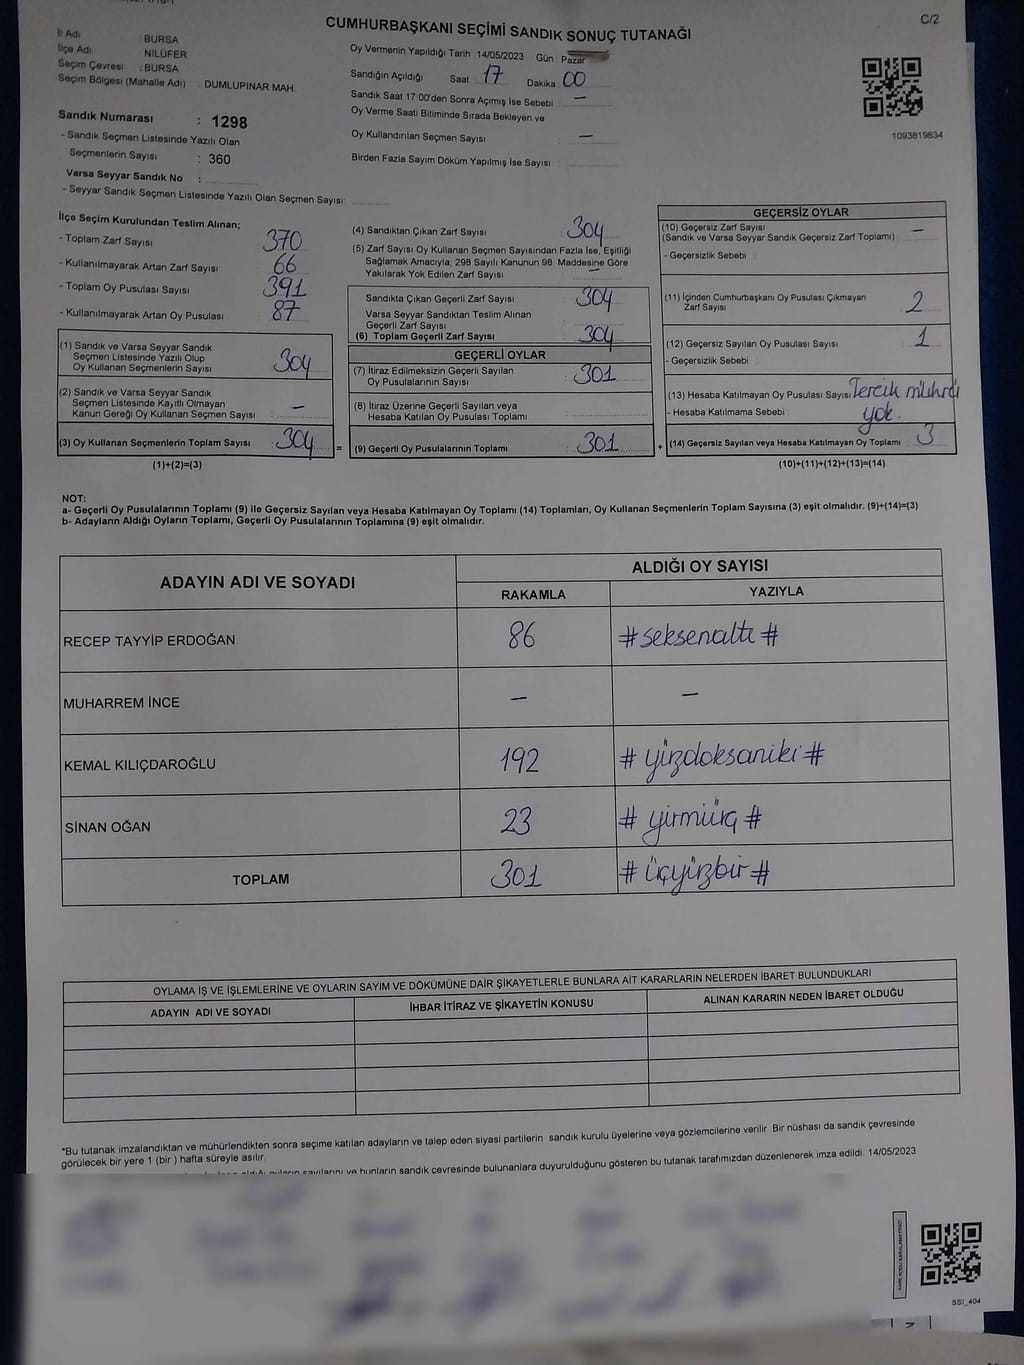 C/2
CUMHURBAŞKANI SEÇİMİ SANDIK SONUÇ TUTANAĞI
İl Adı : BURSA
İlçe Adı : NİLÜFER
Seçim Çevresi : BURSA
Seçim Bölgesi (Mahalle Adı) : DUMLUPINAR MAH.
Sandık Numarası : 1298
- Sandık Seçmen Listesinde Yazılı Olan
Seçmenlerin Sayısı : 360
Varsa Seyyar Sandık No :
- Seyyar Sandık Seçmen Listesinde Yazılı Olan Seçmen Sayısı:
Oy Vermenin Yapıldığı Tarih :14/05/2023 Gün : Pazar
Sandığın Açıldığı Saat 17 Dakika 00
Sandık Saat 17:00'den Sonra Açımış İse Sebebi : –
Oy Verme Saati Bitiminde Sırada Bekleyen ve
Oy Kullandırılan Seçmen Sayısı : –
Birden Fazla Sayım Döküm Yapılmış İse Sayısı :
1093819834
İlçe Seçim Kurulundan Teslim Alınan;
- Toplam Zarf Sayısı : 370
- Kullanılmayarak Artan Zarf Sayısı : 66
- Toplam Oy Pusulası Sayısı : 391
- Kullanılmayarak Artan Oy Pusulası : 87
(1) Sandık ve Varsa Seyyar Sandık
Seçmen Listesinde Yazılı Olup
Oy Kullanan Seçmenlerin Sayısı : 304
(2) Sandık ve Varsa Seyyar Sandık
Seçmen Listesinde Kayıtlı Olmayan
Kanun Gereği Oy Kullanan Seçmen Sayısı : –
(3) Oy Kullanan Seçmenlerin Toplam Sayısı : 304 =
(1)+(2)=(3)
(4) Sandıktan Çıkan Zarf Sayısı : 304
(5) Zarf Sayısı Oy Kullanan Seçmen Sayısından Fazla İse, Eşitliği
Sağlamak Amacıyla, 298 Sayılı Kanunun 98. Maddesine Göre
Yakılarak Yok Edilen Zarf Sayısı : –
Sandıkta Çıkan Geçerli Zarf Sayısı : 304
Varsa Seyyar Sandıktan Teslim Alınan
Geçerli Zarf Sayısı :
(6) Toplam Geçerli Zarf Sayısı : 304
GEÇERLİ OYLAR
(7) İtiraz Edilmeksizin Geçerli Sayılan
Oy Pusulalarının Sayısı : 301
(8) İtiraz Üzerine Geçerli Sayılan veya
Hesaba Katılan Oy Pusulası Toplamı :
(9) Geçerli Oy Pusulalarının Toplamı : 301 +
GEÇERSİZ OYLAR
(10) Geçersiz Zarf Sayısı
(Sandık ve Varsa Seyyar Sandık Geçersiz Zarf Toplamı) : –
- Geçersizlik Sebebi :
(11) İçinden Cumhurbaşkanı Oy Pusulası Çıkmayan
Zarf Sayısı : 2
(12) Geçersiz Sayılan Oy Pusulası Sayısı : 1
- Geçersizlik Sebebi :
(13) Hesaba Katılmayan Oy Pusulası Sayısı : Tercih mührü
- Hesaba Katılmama Sebebi : yok.
(14) Geçersiz Sayılan veya Hesaba Katılmayan Oy Toplamı : 3
(10)+(11)+(12)+(13)=(14)
NOT:
a- Geçerli Oy Pusulalarının Toplamı (9) ile Geçersiz Sayılan veya Hesaba Katılmayan Oy Toplamı (14) Toplamları, Oy Kullanan Seçmenlerin Toplam Sayısına (3) eşit olmalıdır. (9)+(14)=(3)
b- Adayların Aldığı Oyların Toplamı, Geçerli Oy Pusulalarının Toplamına (9) eşit olmalıdır.
ADAYIN ADI VE SOYADI ALDIĞI OY SAYISI
RAKAMLA YAZIYLA
RECEP TAYYİP ERDOĞAN 86 #seksenaltı#
MUHARREM İNCE – –
KEMAL KILIÇDAROĞLU 192 #yüzdoksaniki#
SİNAN OĞAN 23 #yirmiüç#
TOPLAM 301 #üçyüzbir#
OYLAMA İŞ VE İŞLEMLERİNE VE OYLARIN SAYIM VE DÖKÜMÜNE DAİR ŞİKAYETLERLE BUNLARA AİT KARARLARIN NELERDEN İBARET BULUNDUKLARI
ADAYIN ADI VE SOYADI İHBAR İTİRAZ VE ŞİKAYETİN KONUSU ALINAN KARARIN NEDEN İBARET OLDUĞU
*Bu tutanak imzalandıktan ve mühürlendikten sonra seçime katılan adayların ve talep eden siyasi partilerin sandık kurulu üyelerine veya gözlemcilerine verilir Bir nüshası da sandık çevresinde
görülecek bir yere 1 (bir ) hafta süreyle asılır.
oyların sayılarını ve bunların sandık çevresinde bulunanlara duyurulduğunu gösteren bu tutanak tarafımızdan düzenlenerek imza edildi. 14/05/2023
KARE KODU KARALAMAYINIZ!
SSI_404